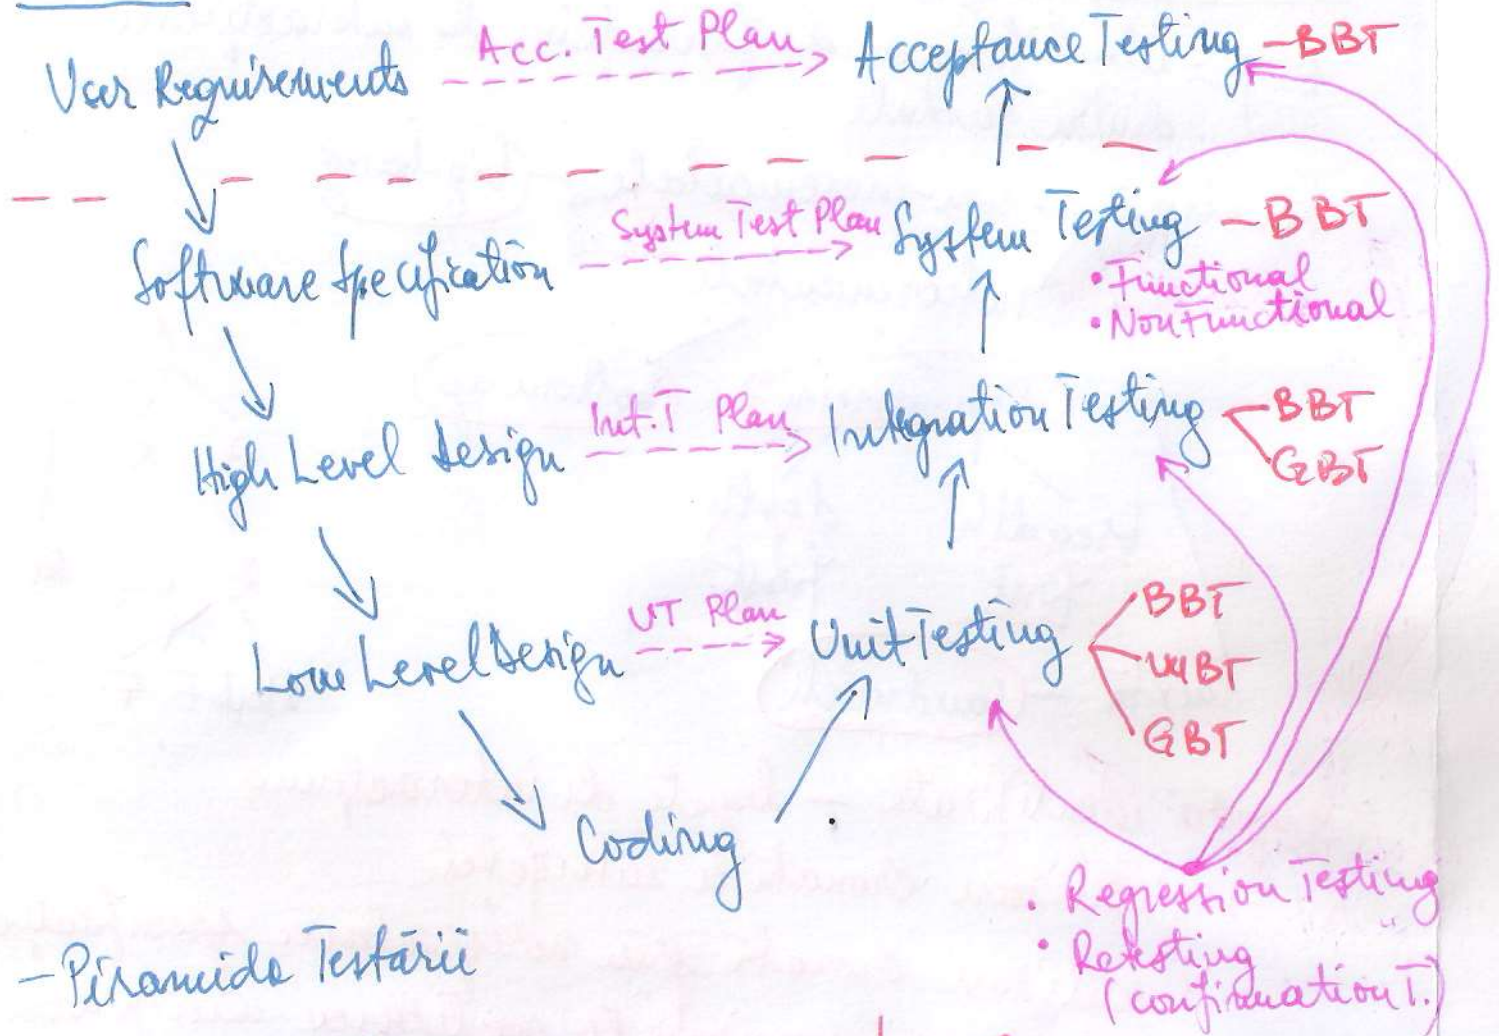 User Requirements
Acc. Test Plan
Acceptance Testing - BBT
Software Specification
System Test Plan
System Testing - BBT
• Functional
• NonFunctional
High Level Design
Int. T Plan
Integration Testing
BBT
GBT
Low Level Design
UT Plan
Unit Testing
BBT
WBT
GBT
Coding
• Regression Testing
• Retesting
(confirmation T.)
- Piramida Testării